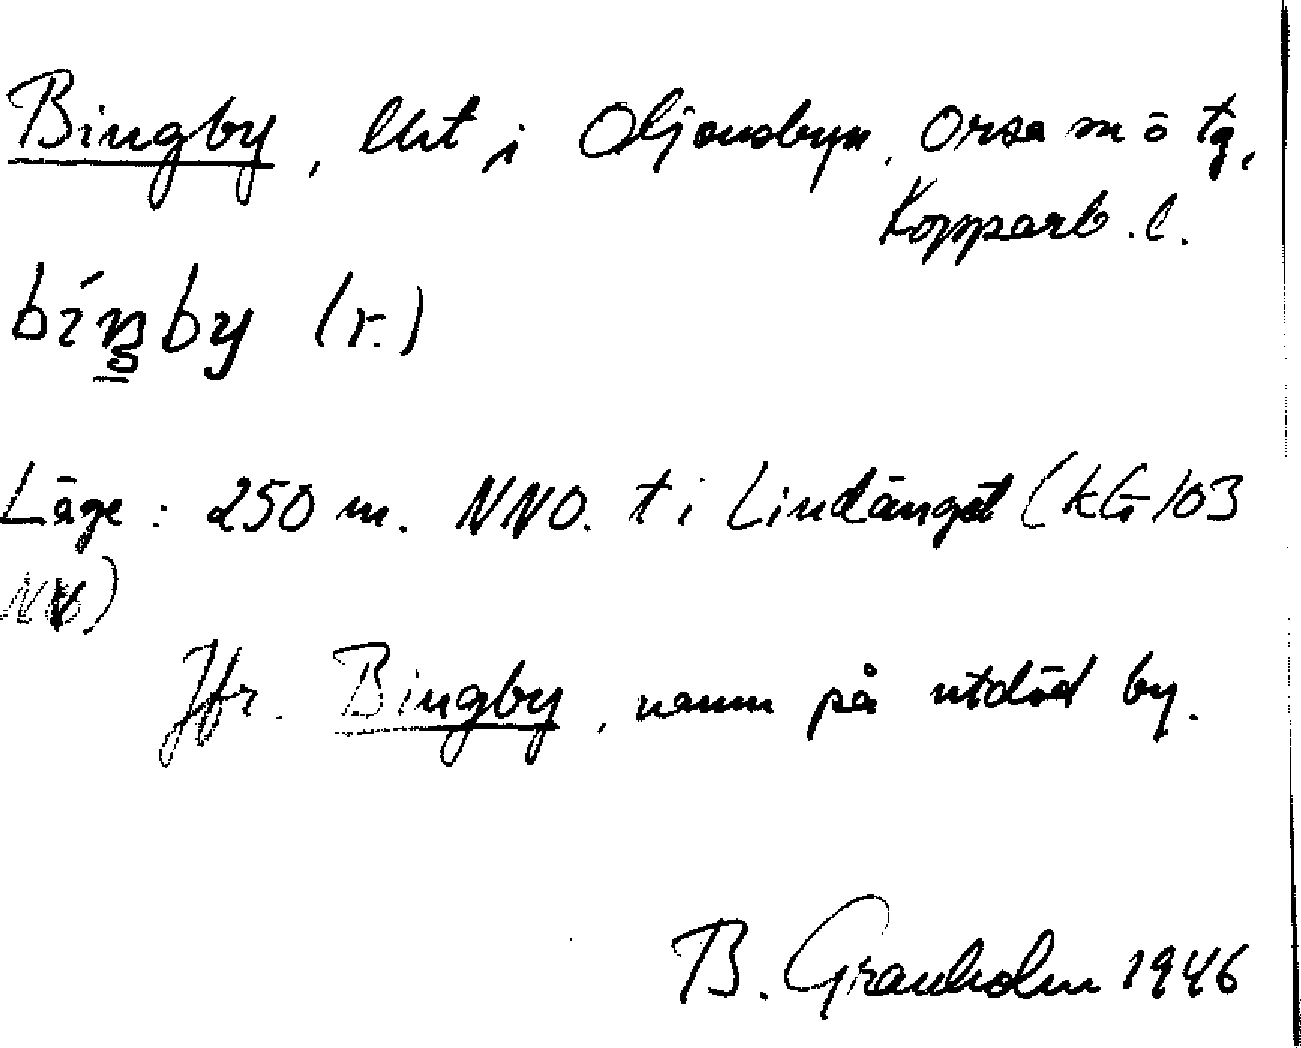 Bingby, lht i Oljonsbyn, Orsa sn o tg,
Kopparb. l.
bíŋby (r.)
Läge: 250 m. NNO. t i Lindänget (kG 103
NV)
Jfr. Bingby, namn på utdöd by.
B. Granholm 1946